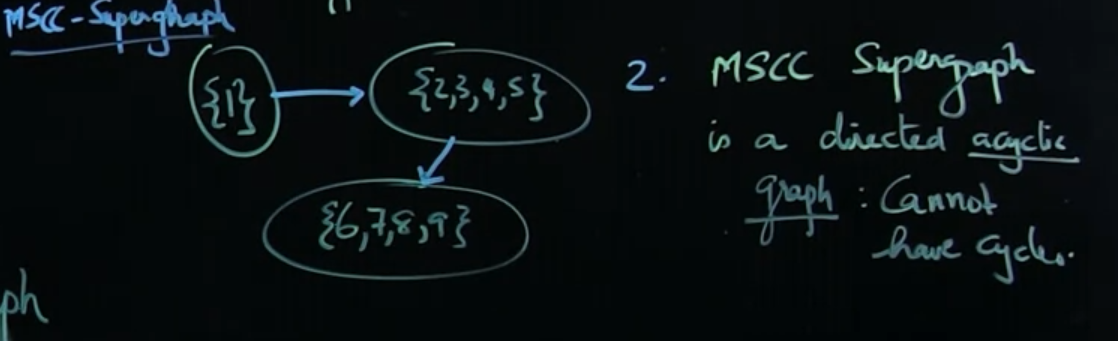 MSCC-Supergraph
{1}
{2,3,4,5}
{6,7,8,9}
2. MSCC Supergraph
is a directed acyclic
graph : Cannot
have cycles.
ph